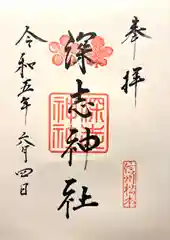 奉拝
深志神社
令和五年六月四日
深志神社
信州松本